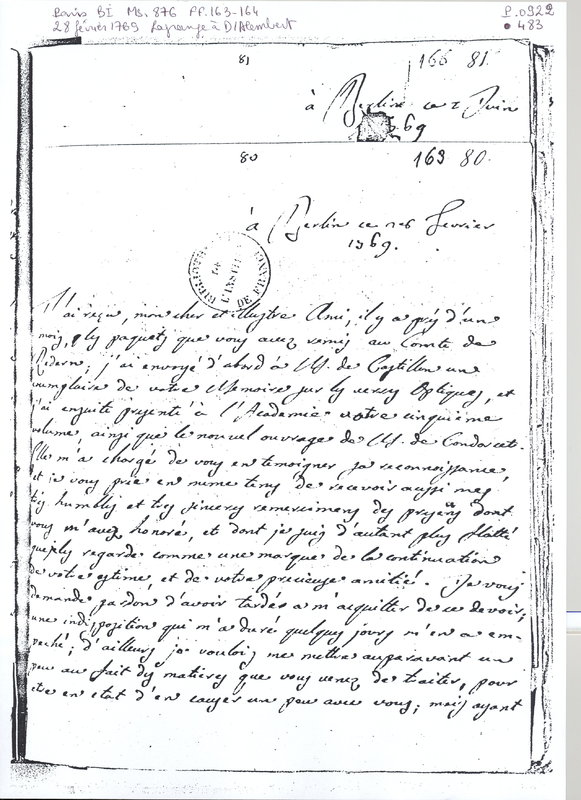 Paris BI Ms. 876 ff. 163-164
P.0922
28 février 1769 Lagrange à D'Alembert
• 483
81
166 81.
à Berlin ce 2 Juin
69
80
163 80.
à Berlin ce 28 fevrier
1769.
BIBLIOTHÈQUE DE L'INSTITUT DE FRANCE
J'ai reçu, mon cher et illustre Ami, il y a près d'un
mois, les paquets que vous avez remis au Comte de
Redern; j'ai envoyé d'abord à M. de Castillon un
exemplaire de votre Memoire sur les verres Optiques, et
j'ai ensuite presenté à l'Academie votre cinquieme
volume, ainsi que le nouvel ouvrage de M. de Condorcet.
Elle m'a chargé de vous en temoigner sa reconnoissance,
et je vous prie en meme tems de recevoir aussi mes
très humbles et très sinceres remercimens des presens dont
vous m'avez honoré, et dont je suis d'autant plus flatté
que je les regarde comme une marque de la continuation
de votre estime, et de votre precieuse amitié. Je vous
demande pardon d'avoir tardé a m'acquitter de ce devoir;
une indisposition qui m'a duré quelques jours m'en a em-
peché; d'ailleurs je voulois me mettre auparavant un
peu au fait des matieres que vous venez de traiter, pour
etre en etat d'en causer un peu avec vous; mais ayant